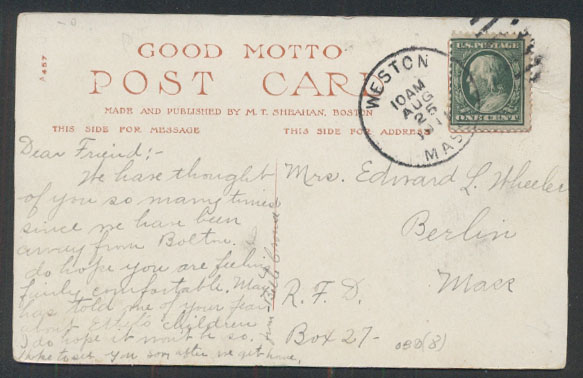 GOOD MOTTO
POST CARD
MADE AND PUBLISHED BY M. T. SHEAHAN, BOSTON
THIS SIDE FOR MESSAGE
THIS SIDE FOR ADDRESS
A 457
WESTON
10 AM
AUG
25
MASS
U.S. POSTAGE
ONE CENT
Dear Friend:-
We have thought
of you so many times
since we have been
away from Bolton. I
do hope you are feeling
fairly comfortable. May
has told me of your fear
about children
I do hope it wont be so.
Hope to see you soon after we get home,
Mrs. Edward L. Wheeler
Berlin
Mass
R. F. D.
Box 27-